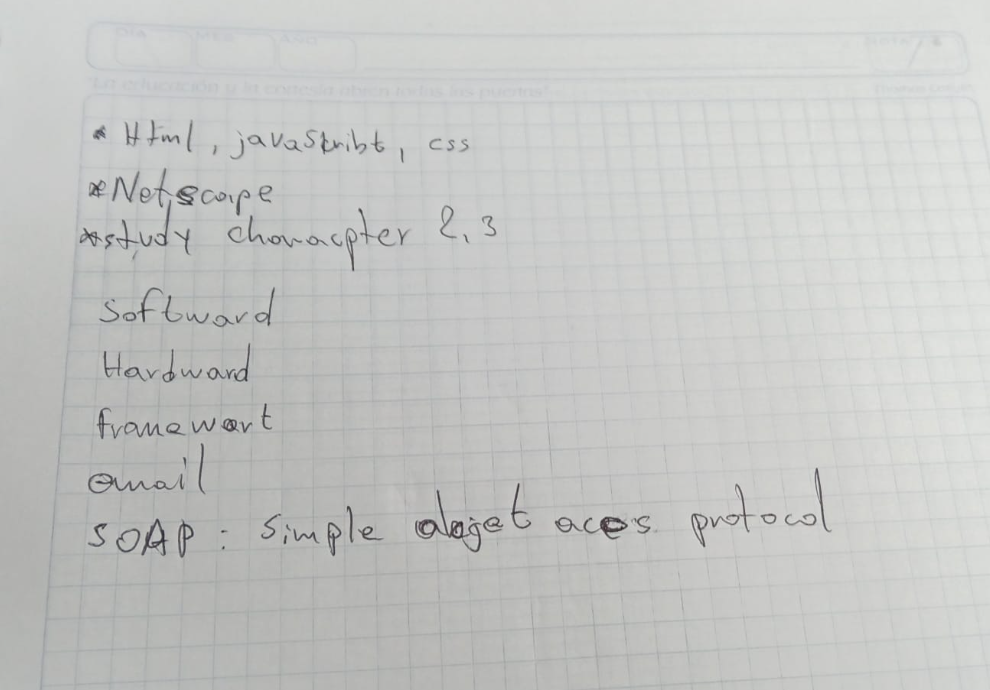 DIA MES AÑO NOTA
La educación y la cortesía abren todas las puertas!
* Html, javaSkribt, css
* Netscape
* study chonacpter 2, 3
Softward
Hardward
framewort
email
SOAP : Simple objet acces protocol